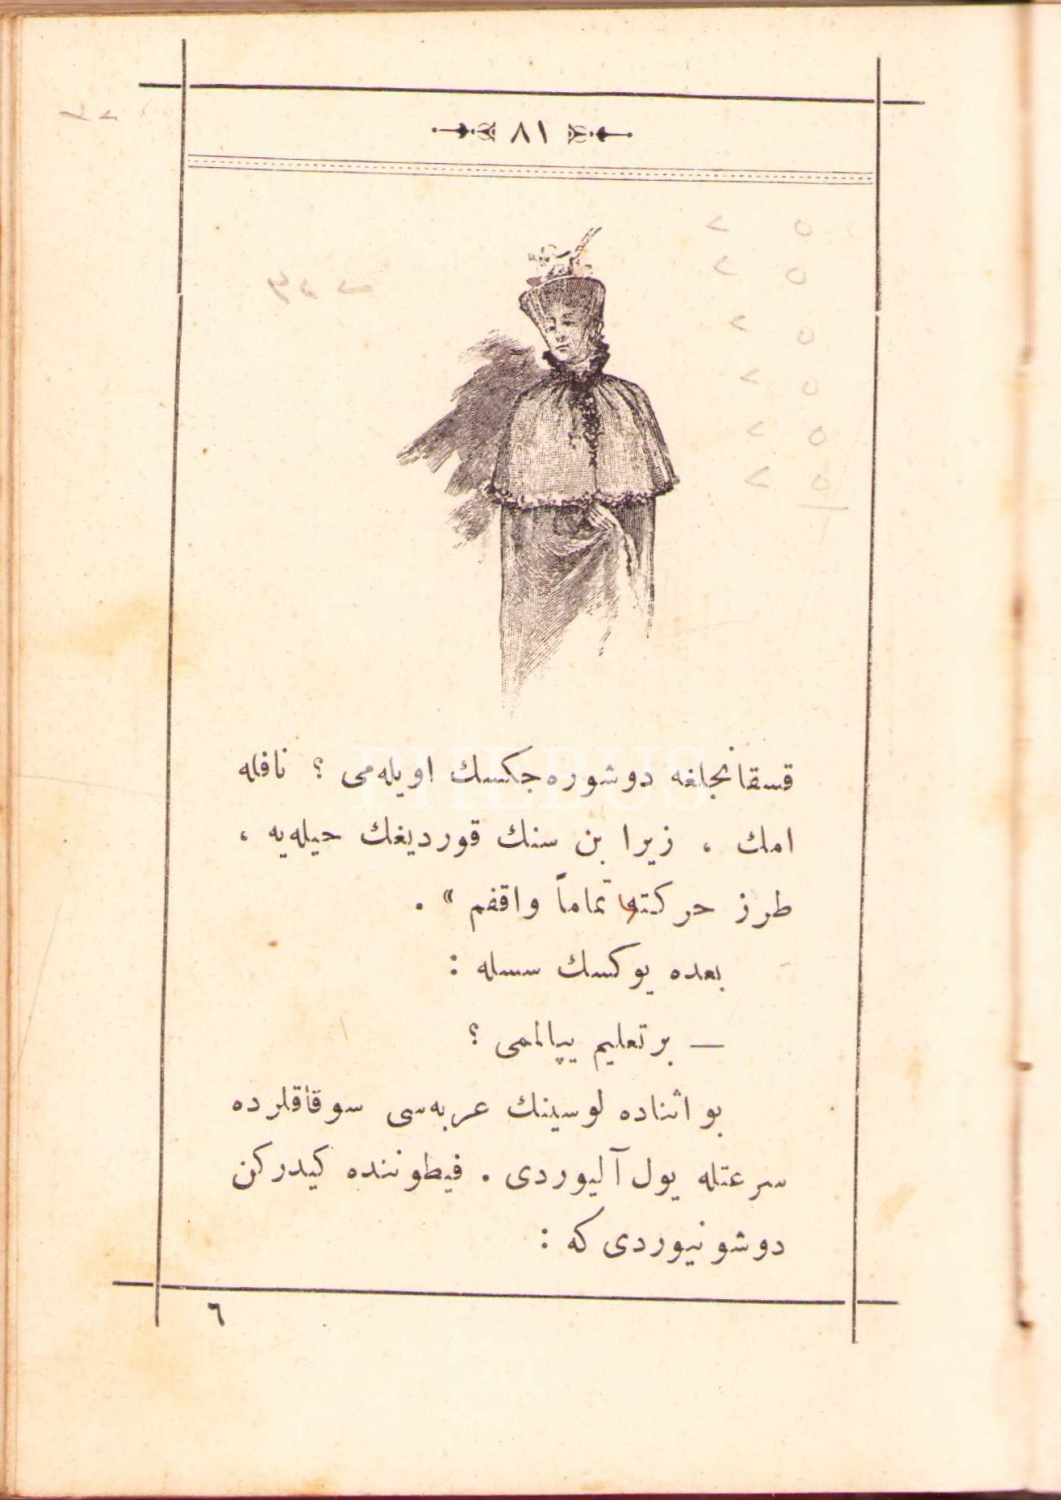 ٨١
PHEBUS
قسقانجلغه دوشوره‌جكسك اویله‌می ؟ نافله
امك ، زیرا بن سنك قوردیغك حیله‌یه ،
طرز حركته تماماً واقفم » .
بعده یوكسك سسله :
— بر تعلیم یپالممی ؟
بو اثناده لوسینك عربه‌سی سوقاقلرده
سرعتله یول آلیوردی . فیطوننده كیدركن
دوشونیوردی كه :
٦